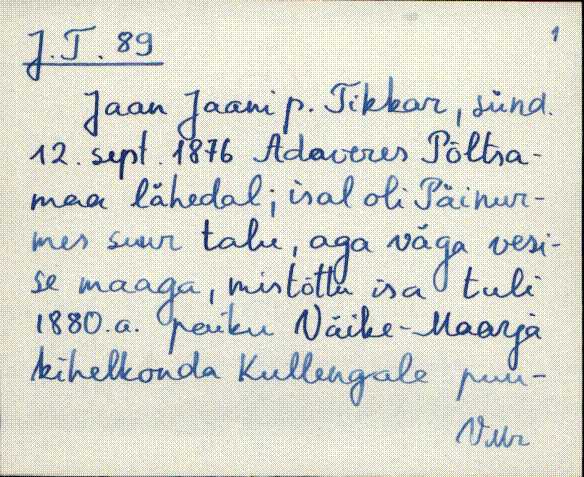 J.T. 89
1
Jaan Jaani p. Tikkar, sünd.
12. sept. 1876 Adaveres Põltsa-
maa lähedal; isal oli Päinur-
mes suur talu, aga väga vesi-
se maaga, mistõttu isa tuli
1880.a. paiku Väike-Maarja
kihelkonda Kullengale puu-